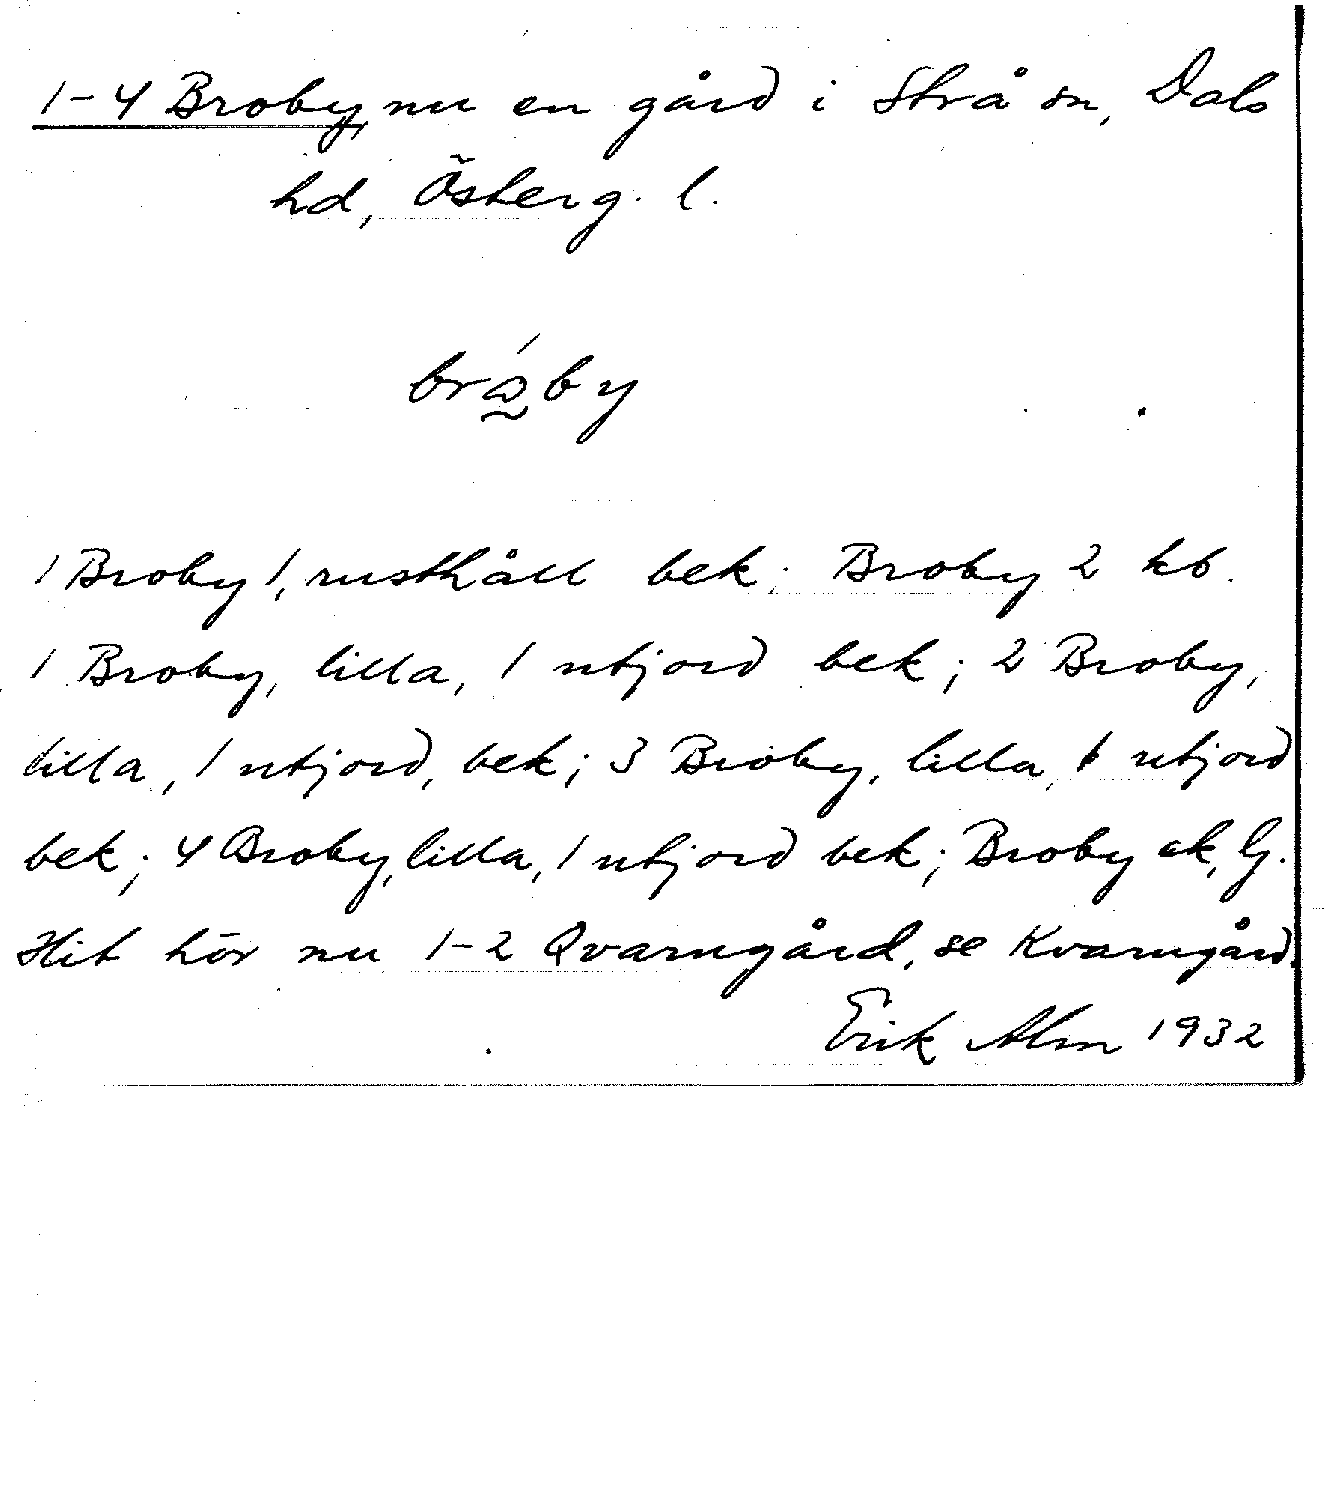 1-4 Broby, nu en gård i Strå sn, Dals
hd, Österg. l.
bró̰by
1 Broby 1, rusthåll bek. Broby 2 kb.
1 Broby, lilla, 1 utjord bek; 2 Broby,
lilla, 1 utjord, bek; 3 Broby, lilla, 1 utjord
bek; 4 Broby, lilla, 1 utjord bek; Broby ek, G.
Hit hör nu 1-2 Qvarngård, se Kvarngård.
Erik Alm 1932